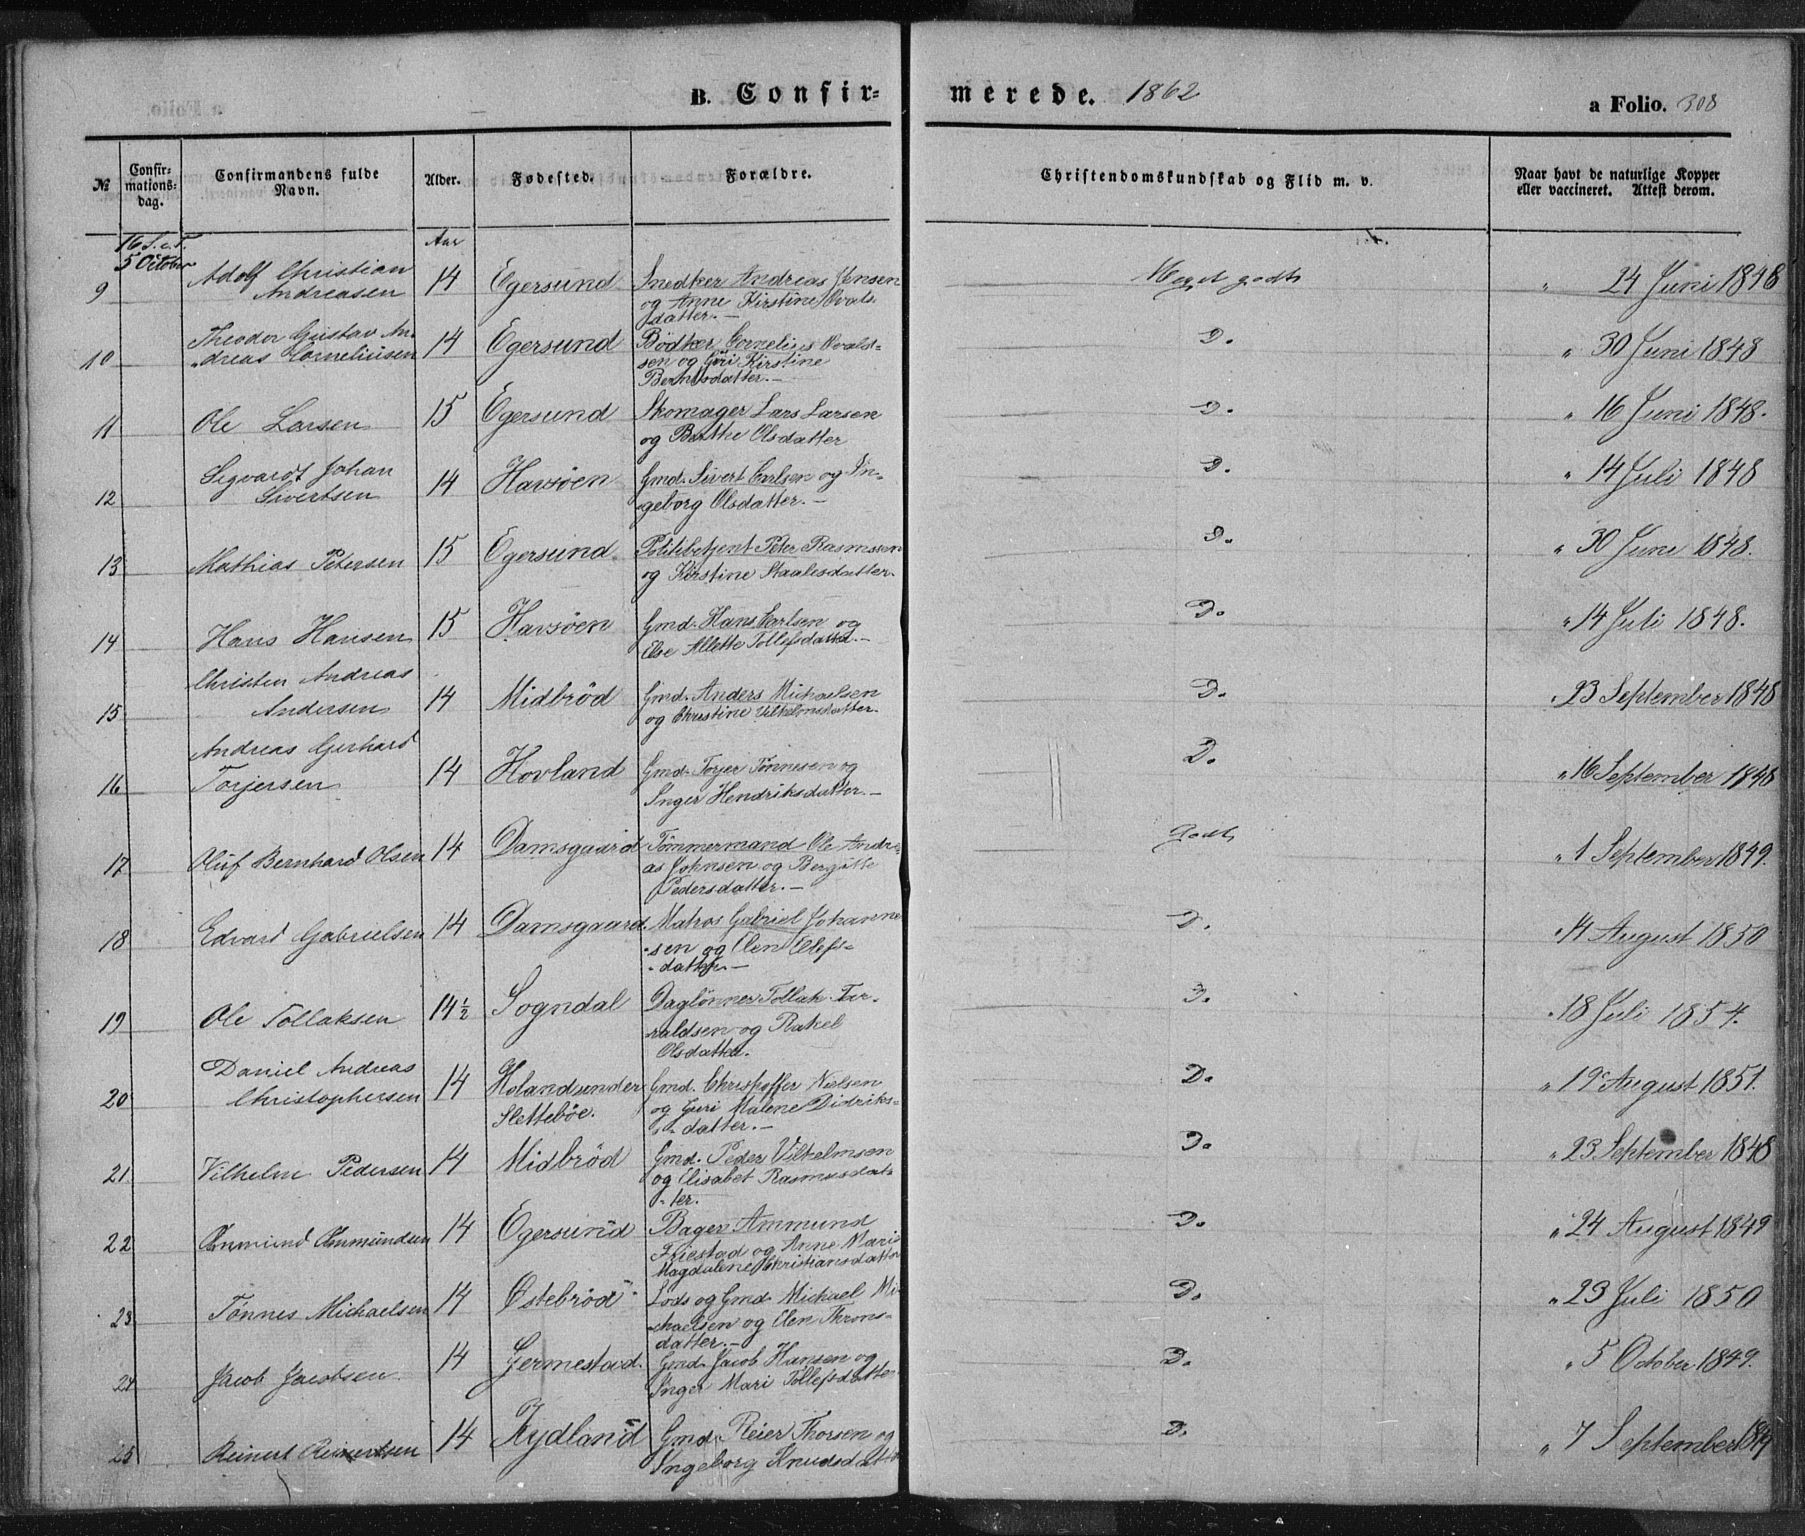 B. Confir- merede. 1862 a Folio. 308
№ Confir-mations-dag. Confirmandens fulde Navn. Alder. Fødested. Forældre. Christendomskundskab og Flid m. v. Naar havt de naturlige Kopper eller vaccineret. Attest derom.
16 S. e. T. Aar
5 October
9 Adolf Christian 14 Egersund Snedker Andreas Jensen Meget godt " 24 Juni 1848
Andreasen og Anne Kirstine Ovals-
datter.-
10 Theodor Gustav An- 14 Egersund Bødker Cornelius Ovald- D. " 30 Juni 1848
dreas Corneliusen sen og Guri Kirstine
Berntsdatter.-
11 Ole Larsen 15 Egersund Skomager Lars Larsen D. " 16 Juni 1848.
og Berthe Olsdatter
12 Segvardt Johan 14 Havsøen Gmd. Sivert Carlsen og In- D. " 14 Juli 1848
Sivertsen geborg Olsdatter.-
13 Mathias Petersen 15 Egersund. Politibetjent Peter Rasmssen D. " 30 Juni 1848.
og Kirstine Staalesdatter.
14 Hans Hansen 15 Havsøen Gmd. Hans Carlsen og D. " 14 Juli 1848.
Else Allette Tollefsdatter.-
15 Christen Andreas 14 Midbrød Gmd. Anders Michaelsen D. " 23 September 1848
Andersen og Christine Vilhelmsdatter.
16 Andreas Gerhard 14 Hovland Gmd. Torjer Tønnesen og D. " 16 September 1848
Torjersen Inger Hendriksdatter.-
17 Oluf Bernhard Olsen 14 Damsgaard Tømmermand Ole Andre- Godt " 1 September 1849.
as Johnsen og Bergitte
Pedersdatter.-
18 Edvard Gabrielsen 14 Damsgaard. Matros Gabriel Johanne- D. " 14 August 1850
sen og Elen Olefs-
datter.-
19 Ole Tollaksen 14 ½ Sogndal Dagl��nner Tollak Tar- D. " 18 Juli 1854.
raldsen og Rakel
Olsdatter.
20 Daniel Andreas 14 Holandunder Gmd. Christoffer Nielsen D. " 19 August 1851.
Christophersen Slettebøe. og Guri Malene Didriks-
datter.-
21 Vilhelm Pedersen 14 Midbrød Gmd. Peder Vilhelmsen D. " 23 September 1848
og Elisabet Rasmusdat-
ter.
22 Ommund Ommundsen 14 Egersund Bager Ammund D. " 24 August 1849
Friestad og Anne Marie
Magdalene Christiansdatter
23 Tønnes Michaelsen 14 Østebrød Lods og Gmd. Michael Mi- D. " 23 Juli 1850
chaelsen og Elen Throns-
datter.-
24 Jacob Jacobsen 14 Germestad. Gmd. Jacob Hansen og D. " 5 October 1849.
Inger Mari Tollefsdatter
25 Reinert Reinertsen 14 Rydland Gmd. Reier Thorsen og D. " 7 September 1849
Ingeborg Knudsdatter